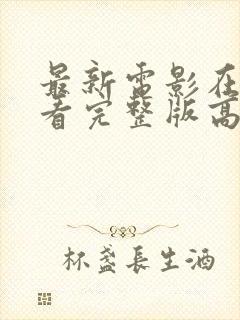 最新雷影在
看完整版高
杯盏長生酒